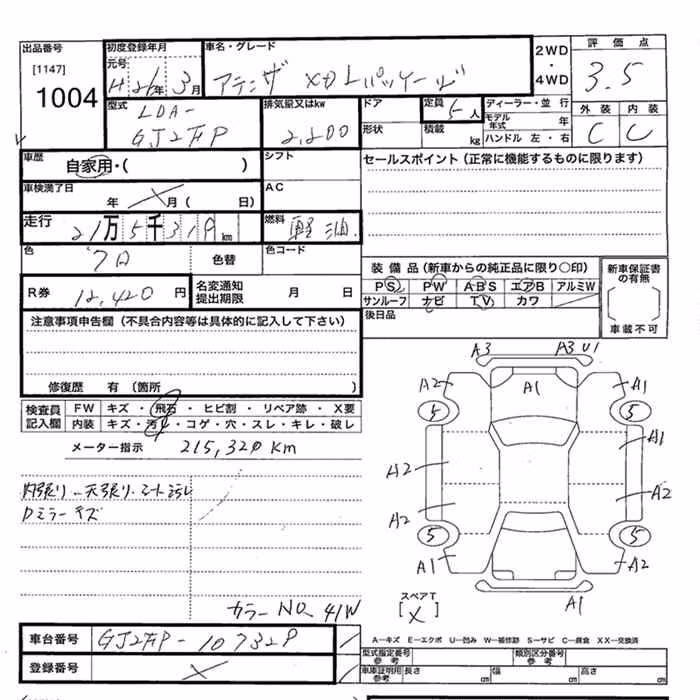 出品番号
[1147]
1004
初度登録年月
元号 H26年 3月
車名・グレード
アテンザ XD Lパッケージ
2WD
・
4WD
評価点
3.5
外装 内装
C C
型式
LDA-
排気量又はkw
2,200
ドア
形状
定員 5人
積載 kg
ディーラー・並行
モデル年式 年
ハンドル 左・右
車歴
自家用・( )
シフト
セールスポイント (正常に機能するものに限ります)
車検満了日
年 月( 日)
AC
走行
21万5千319km
燃料
軽油
色
色替
色コード
R券
12,420円
名変通知
提出期限
月 日
装備品 (新車からの純正品に限り○印)
PS PW ABS エアB アルミW
サンルーフ ナビ TV カワ
後日品
新車保証書
の有無
車載不可
注意事項申告欄 (不具合内容等は具体的に記入して下さい)
修復歴 有 (箇所 )
検査員
記入欄
FW キズ・飛石・ヒビ割・リペア跡・X要
内装 キズ・汚れ・コゲ・穴・スレ・キレ・破レ
メーター指示 215,320 Km
内張り、天張り、シート汚レ
Dミラーキズ
カラーNO 41W
A3 A3 U1
A2 A1 A1
5 5
A1
A2
A2
A2
5 5
A1 A2
A1
スペアT
[X]
A—キズ E—エクボ U—凹み W—補修跡 S—サビ C—腐食 XX—交換済
車台番号
登録番号
型式指定番号
参考
類別区分番号
参考
車庫証明用
参考
長さ cm
幅 cm
高さ cm